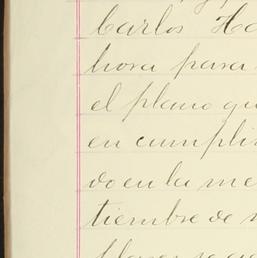 Carlos Ha
hora para
el plano qu
en cumpli
do en la me
tiembre de